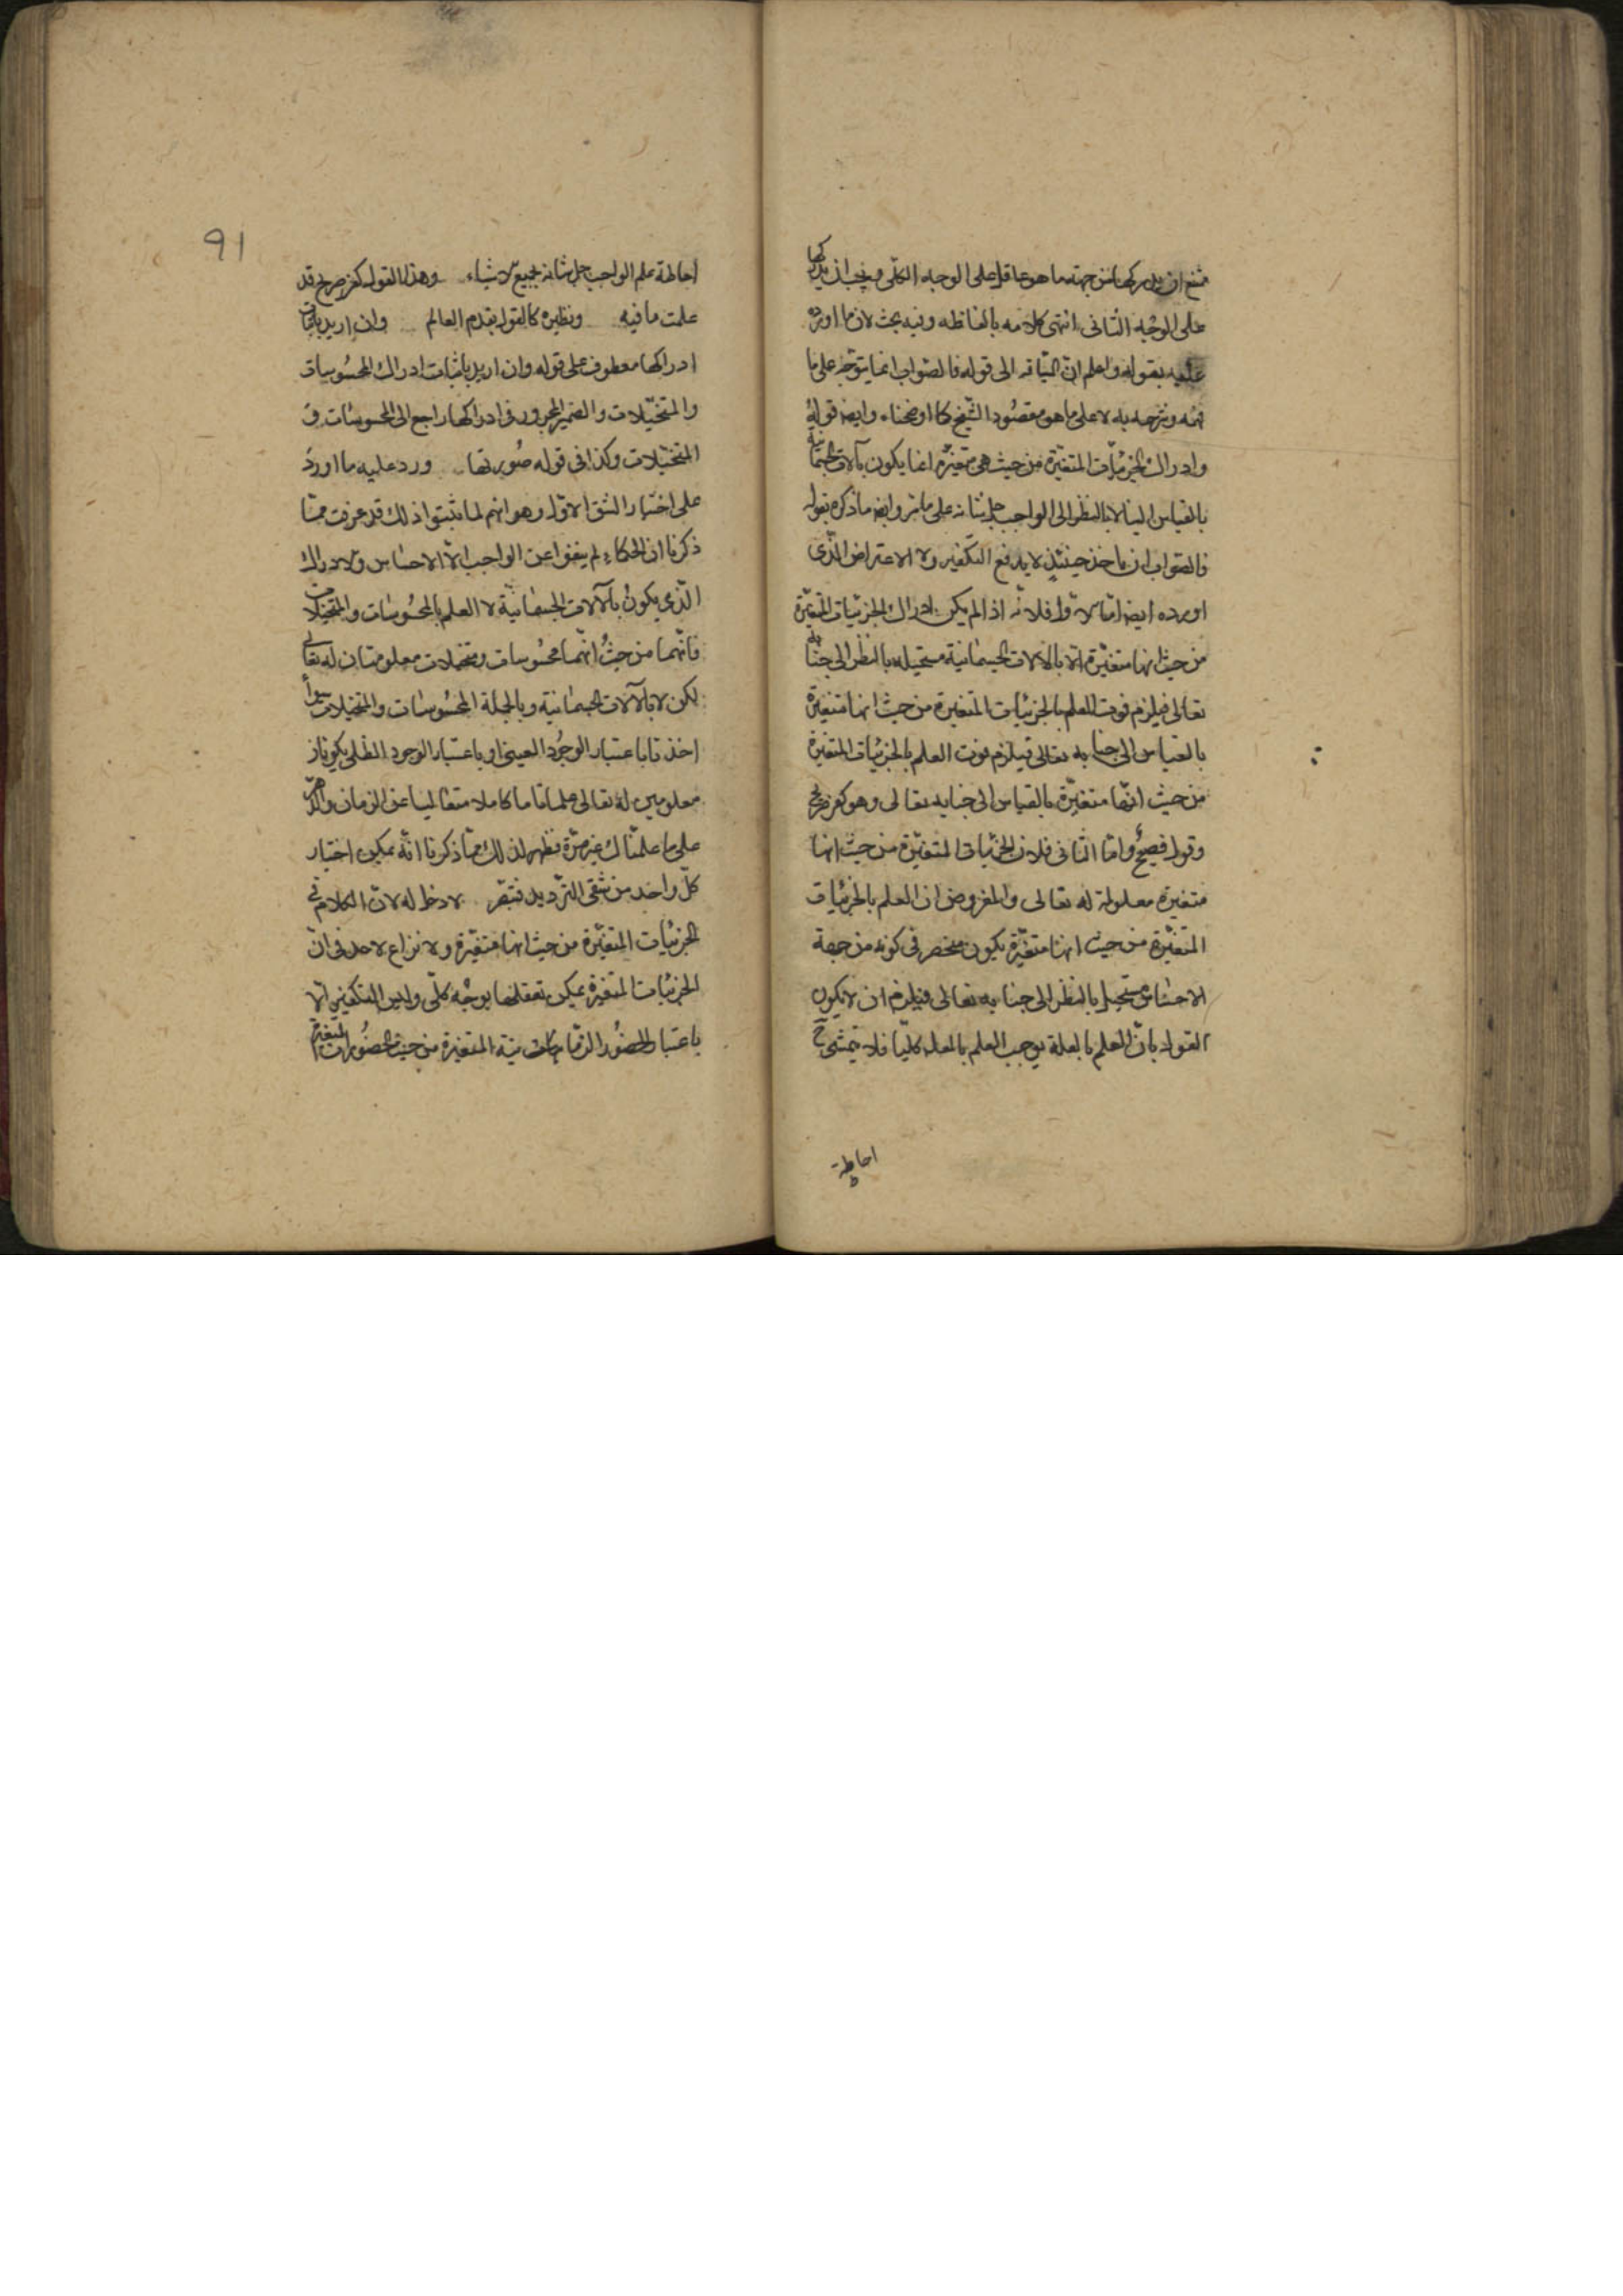 يمتنع ان يدركها من جهة ما هو عاقل على الوجه الكلى ويجب ان يدركها
على الوجه الثانى انتهى كلامه بالفاظه وفيه بحث لان ما اورده
عليه بقوله واعلم ان السياقة الى قوله فالصواب انما يتوجه على ما
فهمه وشرحه به لا على ما هو مقصود الشيخ كما اوضحناه وايضا قوله
وادراك الجزئيات المتغيرة من حيث هى متغيرة انما يكون بالآلات الجسمانية
بالقياس الينا لا بالنظر الى الواجب جل شانه على ما مر وايضا ما ذكره بقوله
فالصواب ان ياخذ حينئذ لا يدفع التكفير ولا الاعتراض الذى
اورده ايضا اما الاول فلانه اذا لم يكن ادراك الجزئيات المتغيرة
من حيث انها متغيرة الا بالآلات الجسمانية مستحيله بالنظر الى جنابه
تعالى فيلزم فوت العلم بالجزئيات المتغيرة من حيث انها متغيرة
بالقياس الى جنابه تعالى فيلزم فوت العلم بالجزئيات المتغيرة
من حيث انها متغيرة بالقياس الى جنابه تعالى وهو كفر صريح
وقول فصيح واما الثانى فلان الجزئيات المتغيرة من حيث انها
متغيرة معلولة له تعالى والمفروض ان العلم بالجزئيات
المتغيرة من حيث انها متغيرة يكون منحصر فى كونه من جهة
الاحساس مستحيل بالنظر الى جنابه تعالى فيلزم ان لا يكون
القول بان العلم بالعلة يوجب العلم بالمعلول كليا فلا يتمشى ح
احاطة
91
احاطة علم الواجب جل شانه بجميع الاشياء وهذا القول كفر صريح قد
علمت ما فيه ونظيره كالقول بقدم العالم وان اريد باثبات
ادراكها معطوف على قوله وان اريد باثبات ادراك المحسوسات
والمتخيلات والضمير المجرور فى ادراكها راجع الى المحسوسات و
المتخيلات وكذا فى قوله صورتها ورد عليه ما اورد
على اختيار الشق الاول وهو انهم لما يثبتوا ذلك قد عرفت مما
ذكرنا ان الحكماء لم ينفوا عن الواجب الا الاحساس والادراك
الذى يكون بالآلات الجسمانية لا العلم بالمحسوسات والمتخيلات
فانهما من حيث انهما محسوسات ومتخيلات معلومتان له تعالى
لكن لا بالآلات الجسمانية وبالجملة المحسوسات والمتخيلات سواء
اخذتا باعتبار الوجود العينى او باعتبار الوجود الظلى يكونان
معلومين له تعالى علما تاما كاملا متعاليا عن الزمان والدهر
على ما علمناك غير مرة فظهر لذلك مما ذكرنا انه يمكن اختيار
كل واحد من شقى الترديد فتبصر لا دخل له لان الكلام فى
الجزئيات المتغيرة من حيث انها متغيرة ولا نزاع لاحد فى ان
الجزئيات المتغيرة يمكن تعقلها بوجه كلى وليس التكفير الا
باعتبار المتغيرة من حيث المتغيرة